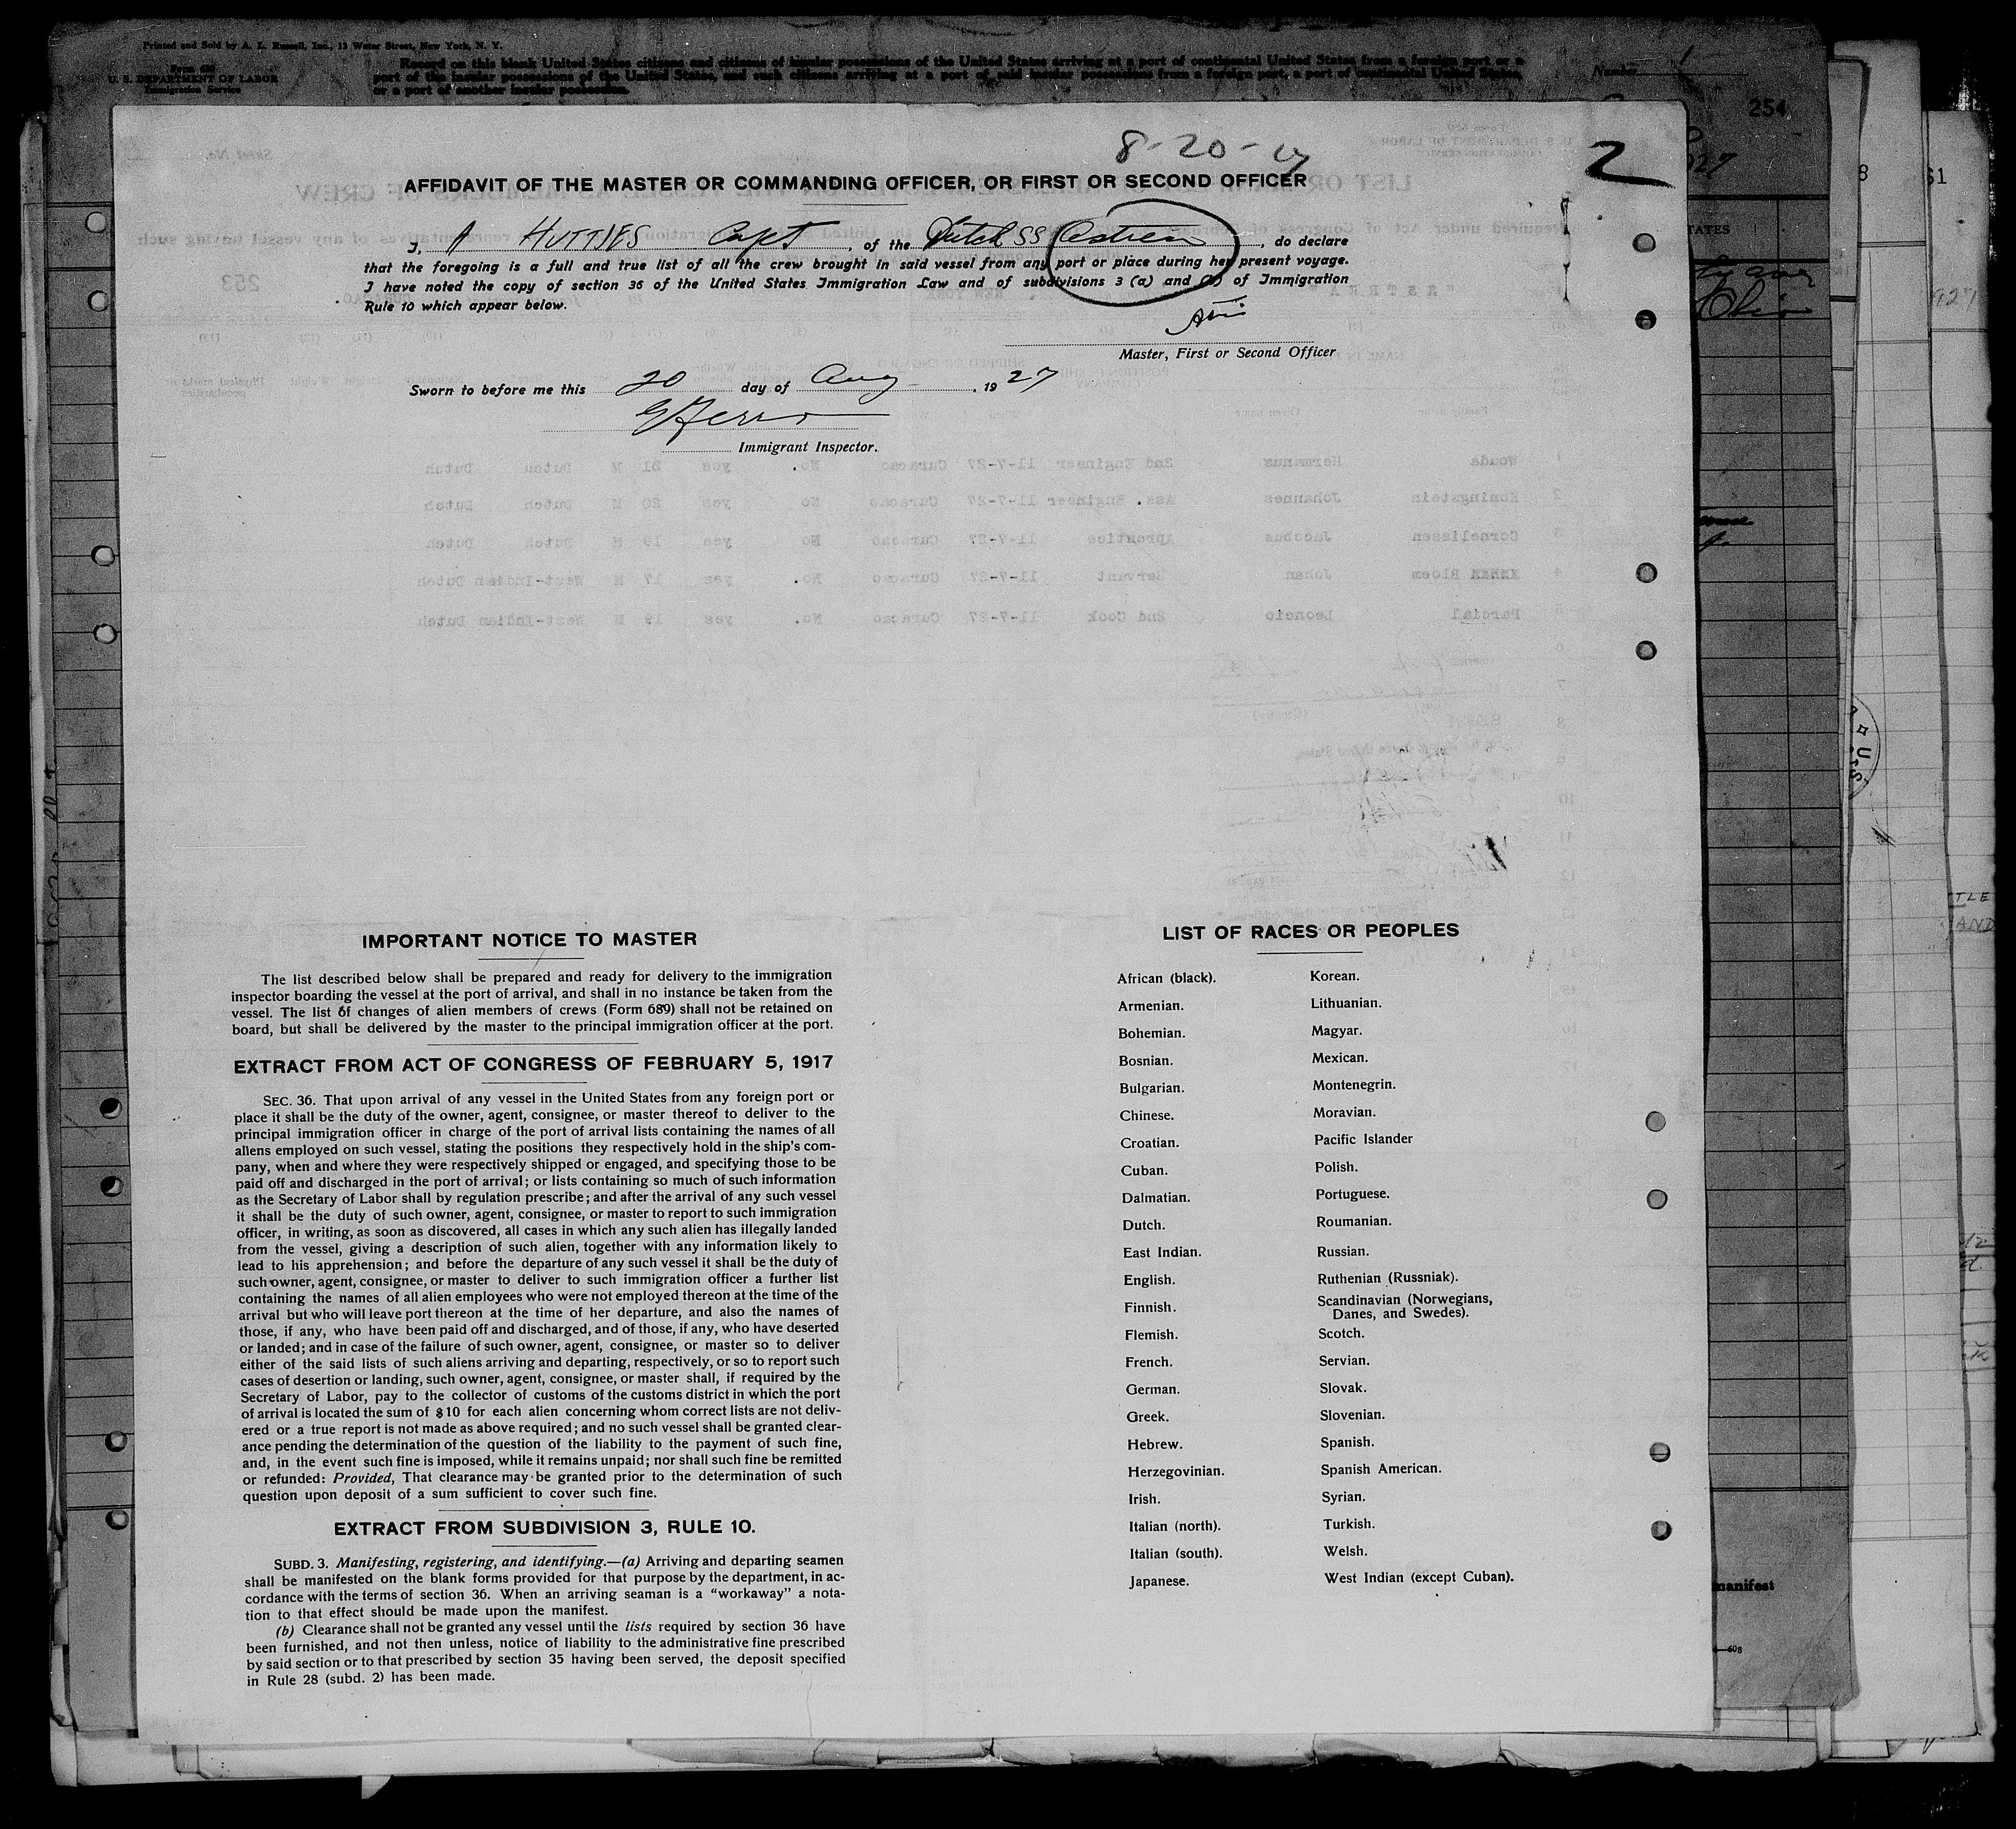 Printed and Sold by A. L. Russell, Inc., 13 Water Street, New York, N. Y.
U. S. DEPARTMENT OF LABOR
Immigration Service
Record on this blank United States citizens and citizens of insular possessions of the United States arriving at a port of continental United States from a foreign port or a
port of the insular possessions of the United States, and such citizens arriving at a port of said insular possessions from a foreign port, a port of continental United States,
or a port of another insular possession.
Number 1
254
8-20-27
2
AFFIDAVIT OF THE MASTER OR COMMANDING OFFICER, OR FIRST OR SECOND OFFICER
I, A HUTTJES Capt, of the Dutch SS Astrea, do declare
that the foregoing is a full and true list of all the crew brought in said vessel from any port or place during her present voyage.
I have noted the copy of section 36 of the United States Immigration Law and of subdivisions 3 (a) and (b) of Immigration
Rule 10 which appear below.
Master, First or Second Officer
Sworn to before me this 20 day of Aug, 1927
Immigrant Inspector.
IMPORTANT NOTICE TO MASTER
The list described below shall be prepared and ready for delivery to the immigration
inspector boarding the vessel at the port of arrival, and shall in no instance be taken from the
vessel. The list of changes of alien members of crews (Form 689) shall not be retained on
board, but shall be delivered by the master to the principal immigration officer at the port.
EXTRACT FROM ACT OF CONGRESS OF FEBRUARY 5, 1917
SEC. 36. That upon arrival of any vessel in the United States from any foreign port or
place it shall be the duty of the owner, agent, consignee, or master thereof to deliver to the
principal immigration officer in charge of the port of arrival lists containing the names of all
aliens employed on such vessel, stating the positions they respectively hold in the ship's com-
pany, when and where they were respectively shipped or engaged, and specifying those to be
paid off and discharged in the port of arrival; or lists containing so much of such information
as the Secretary of Labor shall by regulation prescribe; and after the arrival of any such vessel
it shall be the duty of such owner, agent, consignee, or master to report to such immigration
officer, in writing, as soon as discovered, all cases in which any such alien has illegally landed
from the vessel, giving a description of such alien, together with any information likely to
lead to his apprehension; and before the departure of any such vessel it shall be the duty of
such owner, agent, consignee, or master to deliver to such immigration officer a further list
containing the names of all alien employees who were not employed thereon at the time of the
arrival but who will leave port thereon at the time of her departure, and also the names of
those, if any, who have been paid off and discharged, and of those, if any, who have deserted
or landed; and in case of the failure of such owner, agent, consignee, or master so to deliver
either of the said lists of such aliens arriving and departing, respectively, or so to report such
cases of desertion or landing, such owner, agent, consignee, or master shall, if required by the
Secretary of Labor, pay to the collector of customs of the customs district in which the port
of arrival is located the sum of $10 for each alien concerning whom correct lists are not deliv-
ered or a true report is not made as above required; and no such vessel shall be granted clear-
ance pending the determination of the question of the liability to the payment of such fine,
and, in the event such fine is imposed, while it remains unpaid; nor shall such fine be remitted
or refunded: Provided, That clearance may be granted prior to the determination of such
question upon deposit of a sum sufficient to cover such fine.
EXTRACT FROM SUBDIVISION 3, RULE 10.
SUBD. 3. Manifesting, registering, and identifying.—(a) Arriving and departing seamen
shall be manifested on the blank forms provided for that purpose by the department, in ac-
cordance with the terms of section 36. When an arriving seaman is a "workaway" a nota-
tion to that effect should be made upon the manifest.
(b) Clearance shall not be granted any vessel until the lists required by section 36 have
been furnished, and not then unless, notice of liability to the administrative fine prescribed
by said section or to that prescribed by section 35 having been served, the deposit specified
in Rule 28 (subd. 2) has been made.
LIST OF RACES OR PEOPLES
African (black).
Armenian.
Bohemian.
Bosnian.
Bulgarian.
Chinese.
Croatian.
Cuban.
Dalmatian.
Dutch.
East Indian.
English.
Finnish.
Flemish.
French.
German.
Greek.
Hebrew.
Herzegovinian.
Irish.
Italian (north).
Italian (south).
Japanese.
Korean.
Lithuanian.
Magyar.
Mexican.
Montenegrin.
Moravian.
Pacific Islander
Polish.
Portuguese.
Roumanian.
Russian.
Ruthenian (Russniak).
Scandinavian (Norwegians,
Danes, and Swedes).
Scotch.
Servian.
Slovak.
Slovenian.
Spanish.
Spanish American.
Syrian.
Turkish.
Welsh.
West Indian (except Cuban).
Ohio
manifest